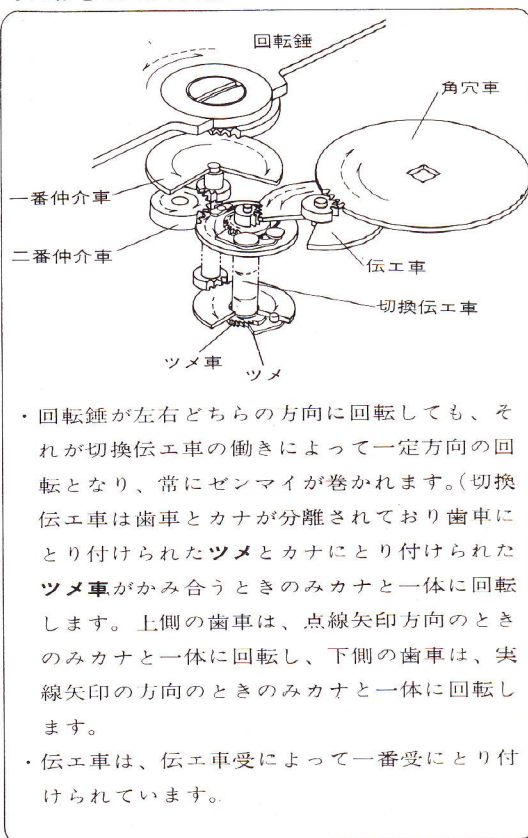 回転錘
角穴車
一番仲介車
二番仲介車
伝エ車
切換伝エ車
ツメ車
ツメ
・回転錘が左右どちらの方向に回転しても、そ
れが切換伝エ車の働きによって一定方向の回
転となり、常にゼンマイが巻かれます。(切換
伝エ車は歯車とカナが分離されており歯車に
とり付けられたツメとカナにとり付けられた
ツメ車がかみ合うときのみカナと一体に回転
します。上側の歯車は、点線矢印方向のとき
のみカナと一体に回転し、下側の歯車は、実
線矢印の方向のときのみカナと一体に回転し
ます。
・伝エ車は、伝エ車受によって一番受にとり付
けられています。